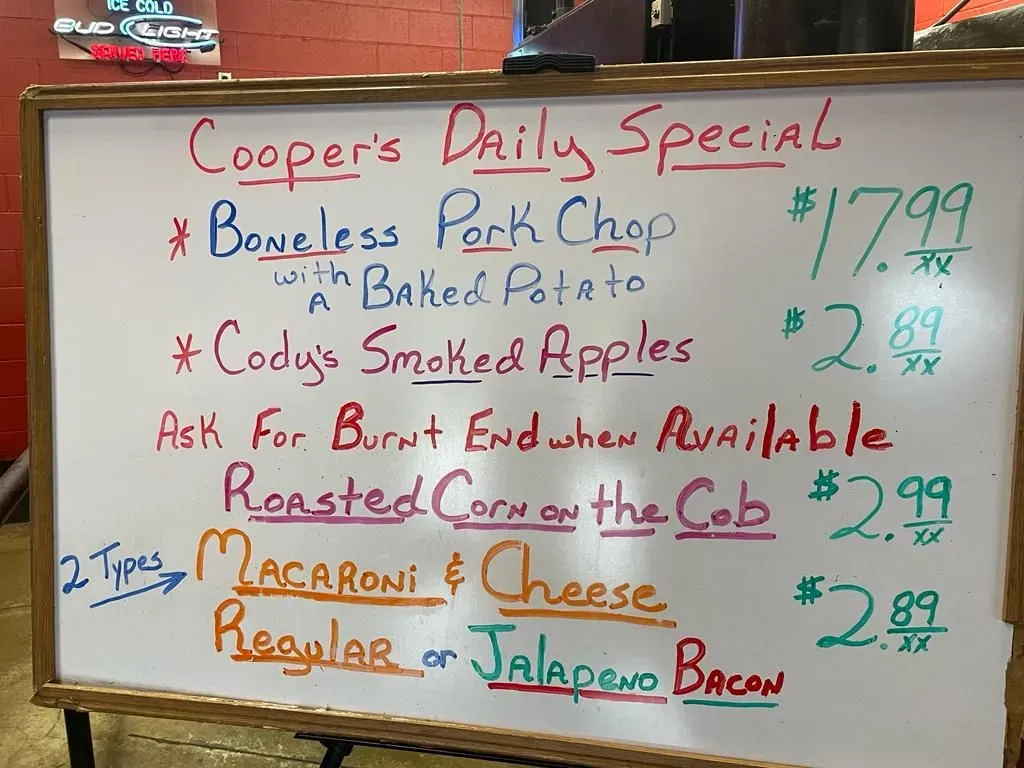 ICE COLD
BUD LIGHT
SERVED HERE
Cooper's Daily Special
* Boneless Pork Chop $17.99/xx
with A Baked Potato
* Cody's Smoked Apples $2.89/xx
Ask For Burnt End when Available
Roasted Corn on the Cob $2.99/xx
2 Types → Macaroni & Cheese $2.89/xx
Regular or Jalapeno Bacon